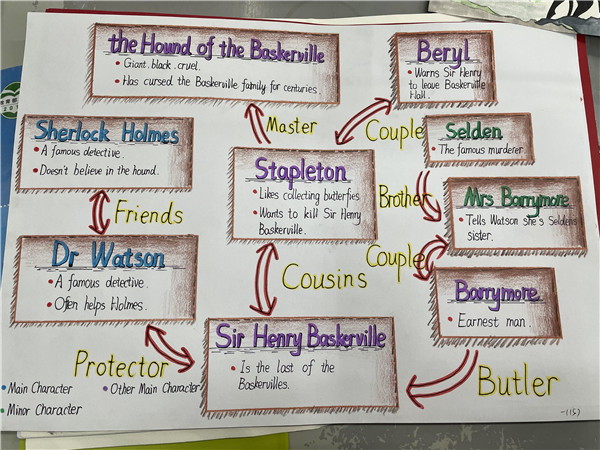 the Hound of the Baskerville
Giant. black. cruel.
Has cursed the Baskerville family for centuries.
Beryl
Warns Sir Henry
to leave Baskerville
Hall.
Master
Couple
Sherlock Holmes
A famous detective.
Doesn't believe in the hound.
Stapleton
Likes collecting butterfies
Wants to kill Sir Henry
Baskerville.
Selden
The famous murderer
Friends
Brother
Mrs Barrymore
Tells Watson she's Seldens
sister.
Dr Watson
A famous detective.
Often helps Holmes.
Cousins
Couple
Barrymore
Earnest man.
Protector
Sir Henry Baskerville
Is the last of the
Baskervilles.
Butler
Main Character
Other Main Character
Minor Character